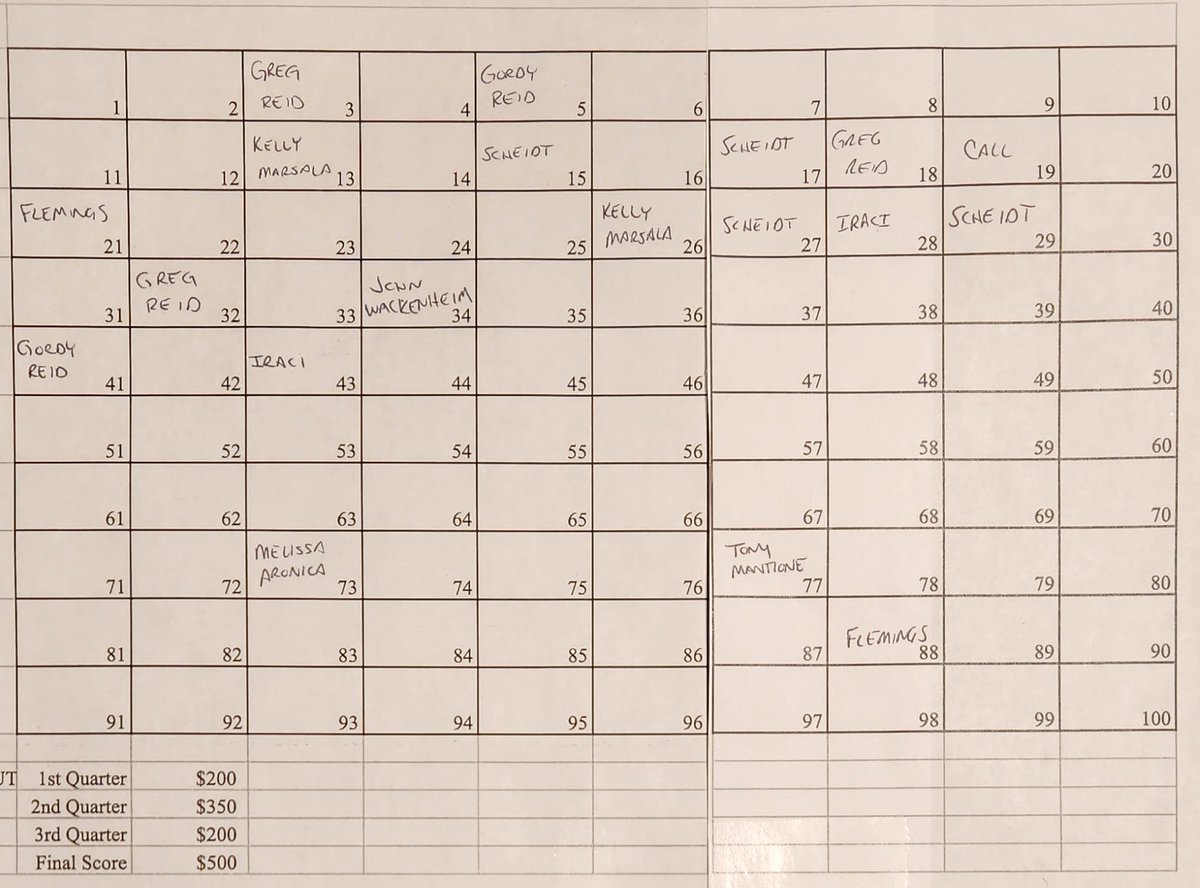 GREG
REID
GORDY
REID
1 2 3 4 5 6 7 8 9 10
KELLY
MARSALA
SCHEIDT
SCHEIDT
GREG
REID
CALL
11 12 13 14 15 16 17 18 19 20
FLEMINGS
KELLY
MARSALA
SCHEIDT
IRACI
SCHEIDT
21 22 23 24 25 26 27 28 29 30
GREG
REID
JOHN
WACKENHEIM
31 32 33 34 35 36 37 38 39 40
GORDY
REID
IRACI
41 42 43 44 45 46 47 48 49 50
51 52 53 54 55 56 57 58 59 60
61 62 63 64 65 66 67 68 69 70
MELISSA
ARONICA
TONY
MANTIONE
71 72 73 74 75 76 77 78 79 80
FLEMINGS
81 82 83 84 85 86 87 88 89 90
91 92 93 94 95 96 97 98 99 100
UT 1st Quarter $200
2nd Quarter $350
3rd Quarter $200
Final Score $500